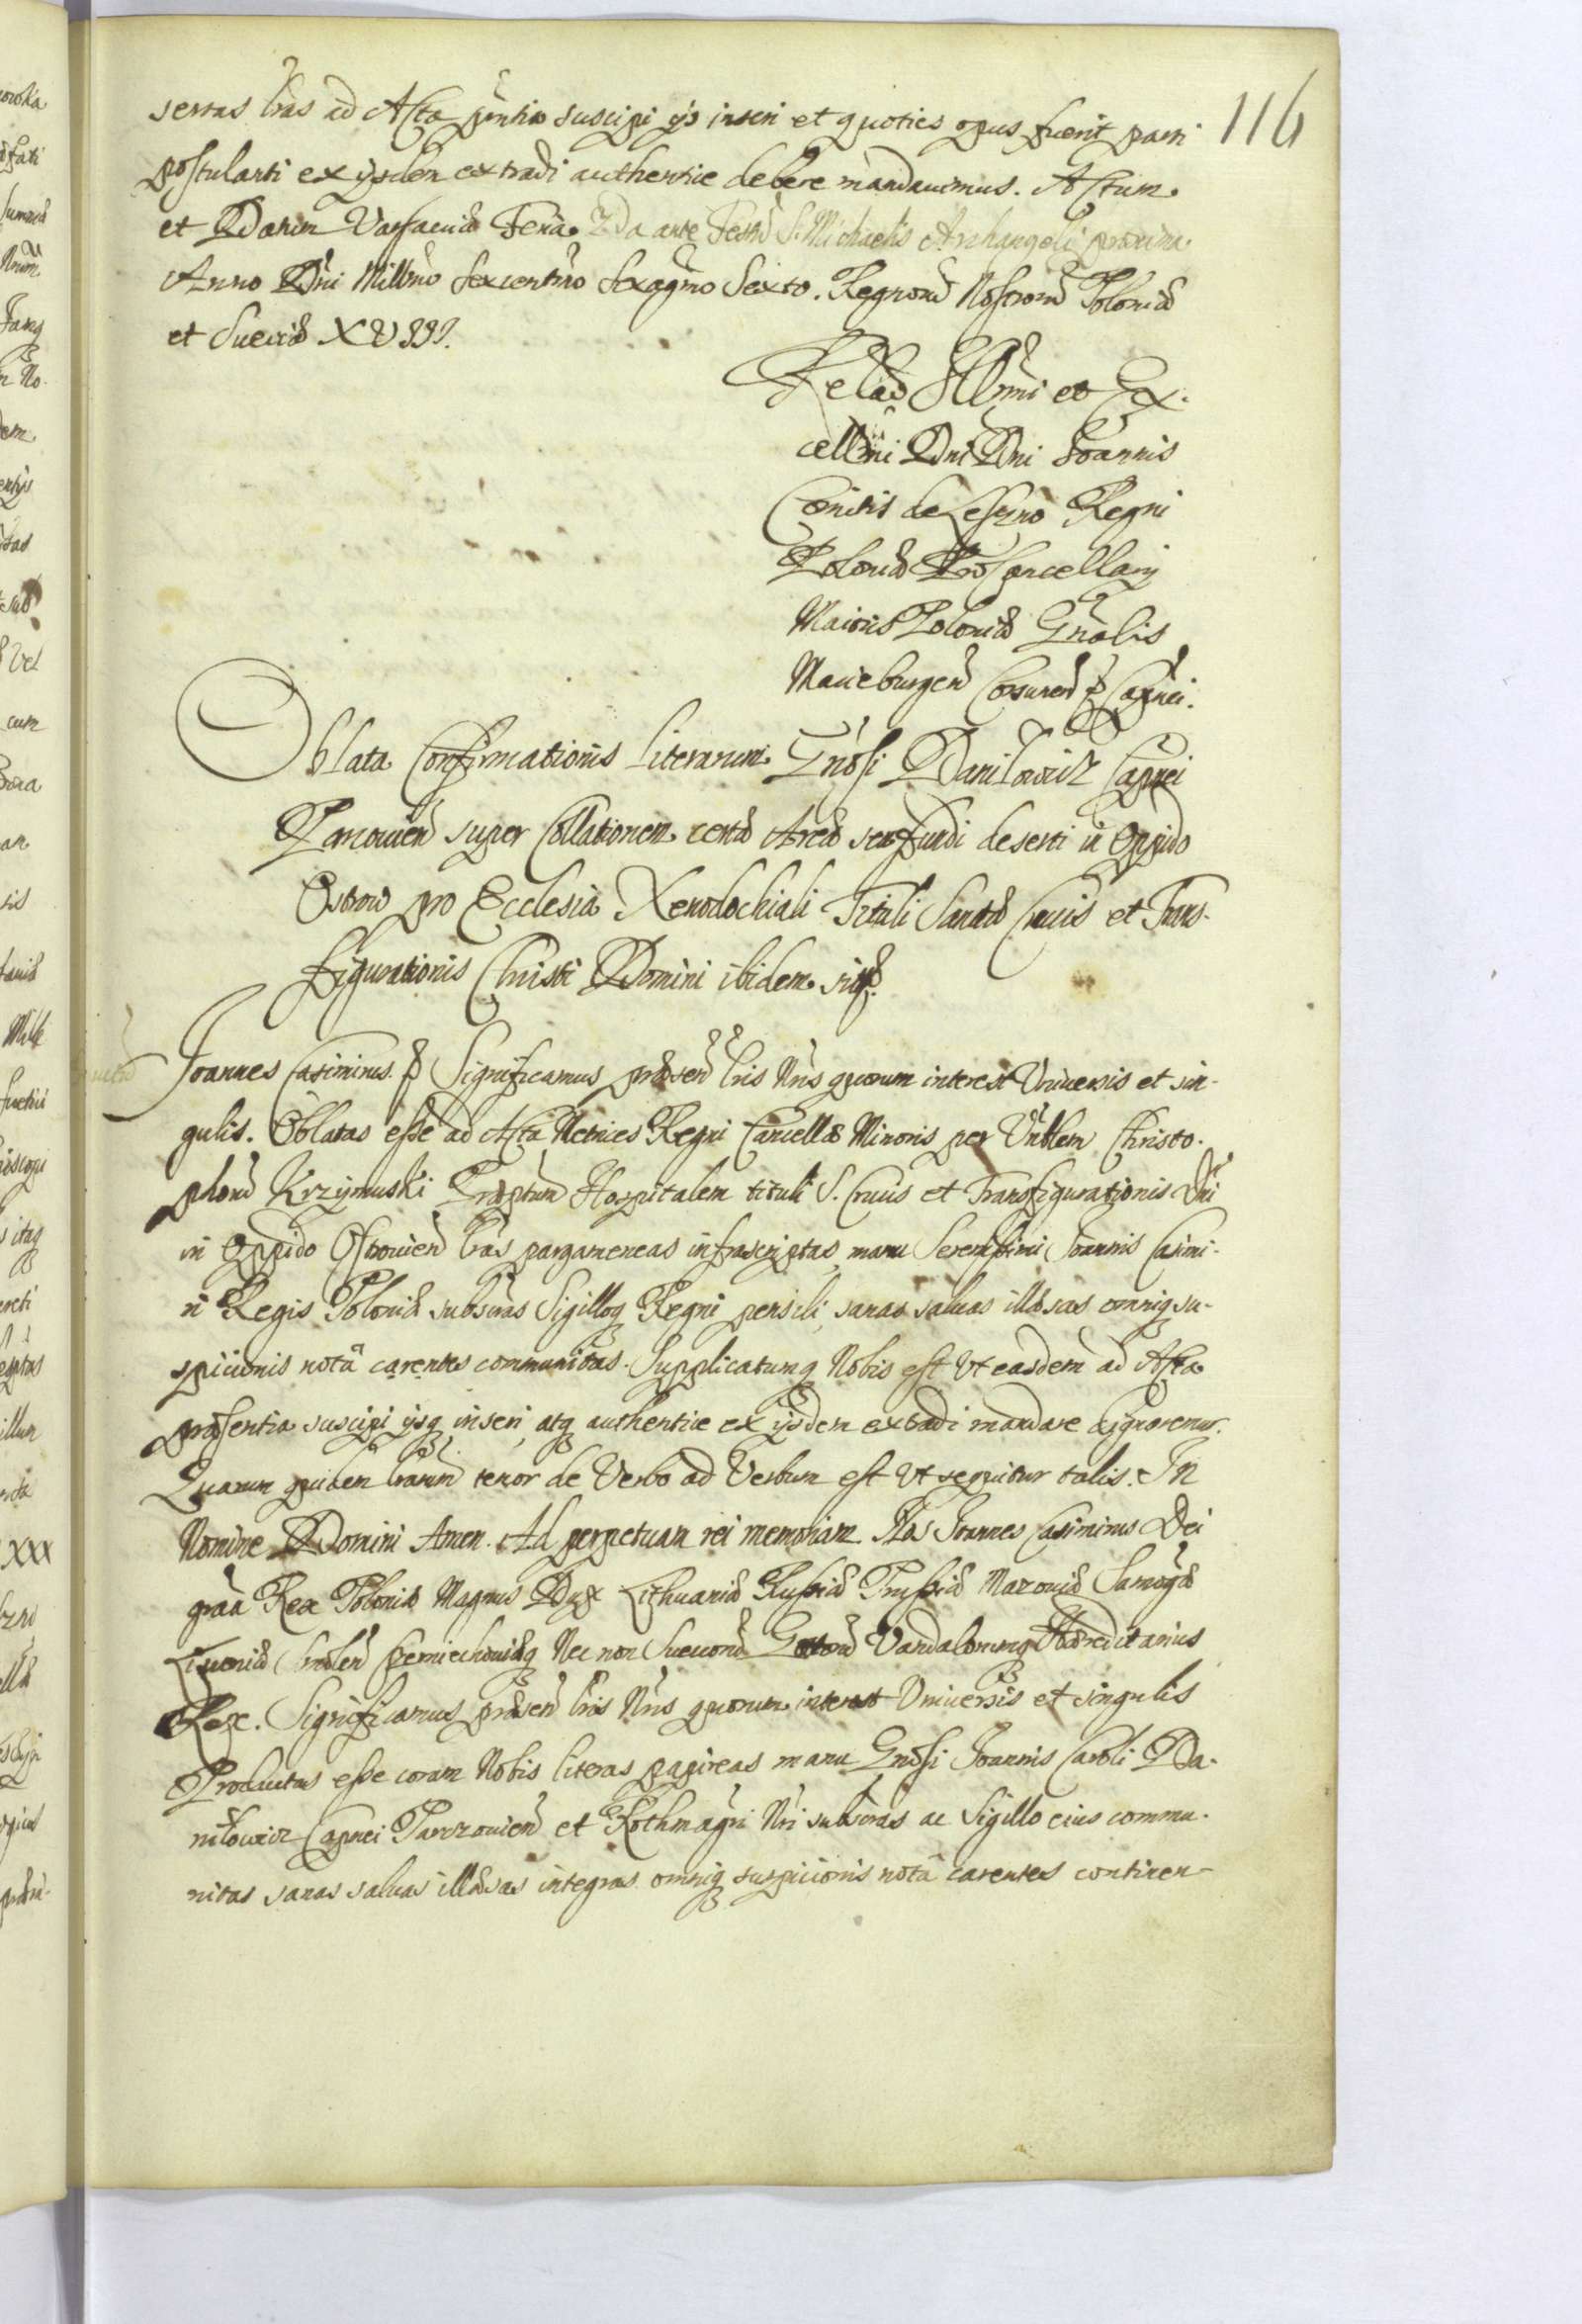 116
sertas lras ad Acta pñtia suscipi ijs inseri et quoties opus fuerit parti
postulanti ex ijsdem extradi authentice debere mandavimus. Actum
et Datum Varsaviæ Feria 2da ante Festũ S. Michaelis Archangeli proxima
Anno Dni Millmo sexcentmo sexagmo Sexto. Regnorũ Nostrorũ Poloniæ
et Sueciæ XVIII.
Relao Illmi et Ex-
cellmi Dni Dni Joannis
Comitis de Leszno Regni
Poloniæ ProCancellarij
Maioris Poloniæ Gnalis
Marieburgeñ Corsuneñ &c Capnei.
Oblata Confirmationis literarum Gnosi Danilowicz Capnei
Parcovieñ super Collationem certæ Areæ seu fundi deserti in Oppido
Ostrow pro Ecclesia Xenodochiali Tituli Sanctæ Crucis et Trans-
figurationis Christi Domini ibidem
Joannes Casimirus &c Significamus præseñ lris Nris quorum interest Universis et sin-
gulis. Oblatas esse ad Acta Metrices Regni Cancellæ Minoris per Vnblem Christo-
phorũ Krzymuski Præptum Hospitalem tituli S. Crucis et Transfigurationis Dni
in Oppido Ostrovieñ lras pargameneas infrascriptas, manu Serenissimi Joannis Casimi-
ri Regis Poloniæ subscras Sigilloq Regni pensili, sanas salvas illæsas omniq su-
spicionis notâ carentes communitas. Supplicatumq Nobis est Vt easdem ad Acta
præsentia suscipi ijsq inseri, atq authentice ex ijsdem extradi mandare dignaremur.
Quarum quidem lrarum tenor de Verbo ad Verbum est Vt sequitur talis. In
Nomine Domini Amen. Ad perpetuam rei memoriam. Nos Joannes Casimirus Dei
graa Rex Poloniæ Magnus Dux Lithuaniæ Russiæ Prussiæ Mazoviæ Samogæ
Livoniæ Smoleñ Czerniechoviæq Nec non Suecorũ Gottorũ Vandalorumq Hæreditarius
Rex. Significamus præseñ lris Nris quorum interest Universis et singulis
Productas esse coram Nobis literas papireas manu Gnosi Joannis Caroli Da-
niłowicz Capnei Parczovieñ et Rothmagri Nri subscras ac Sigillo eius commu-
nitas sanas salvas illæsas integras omniq suspicionis notâ carentes continen-